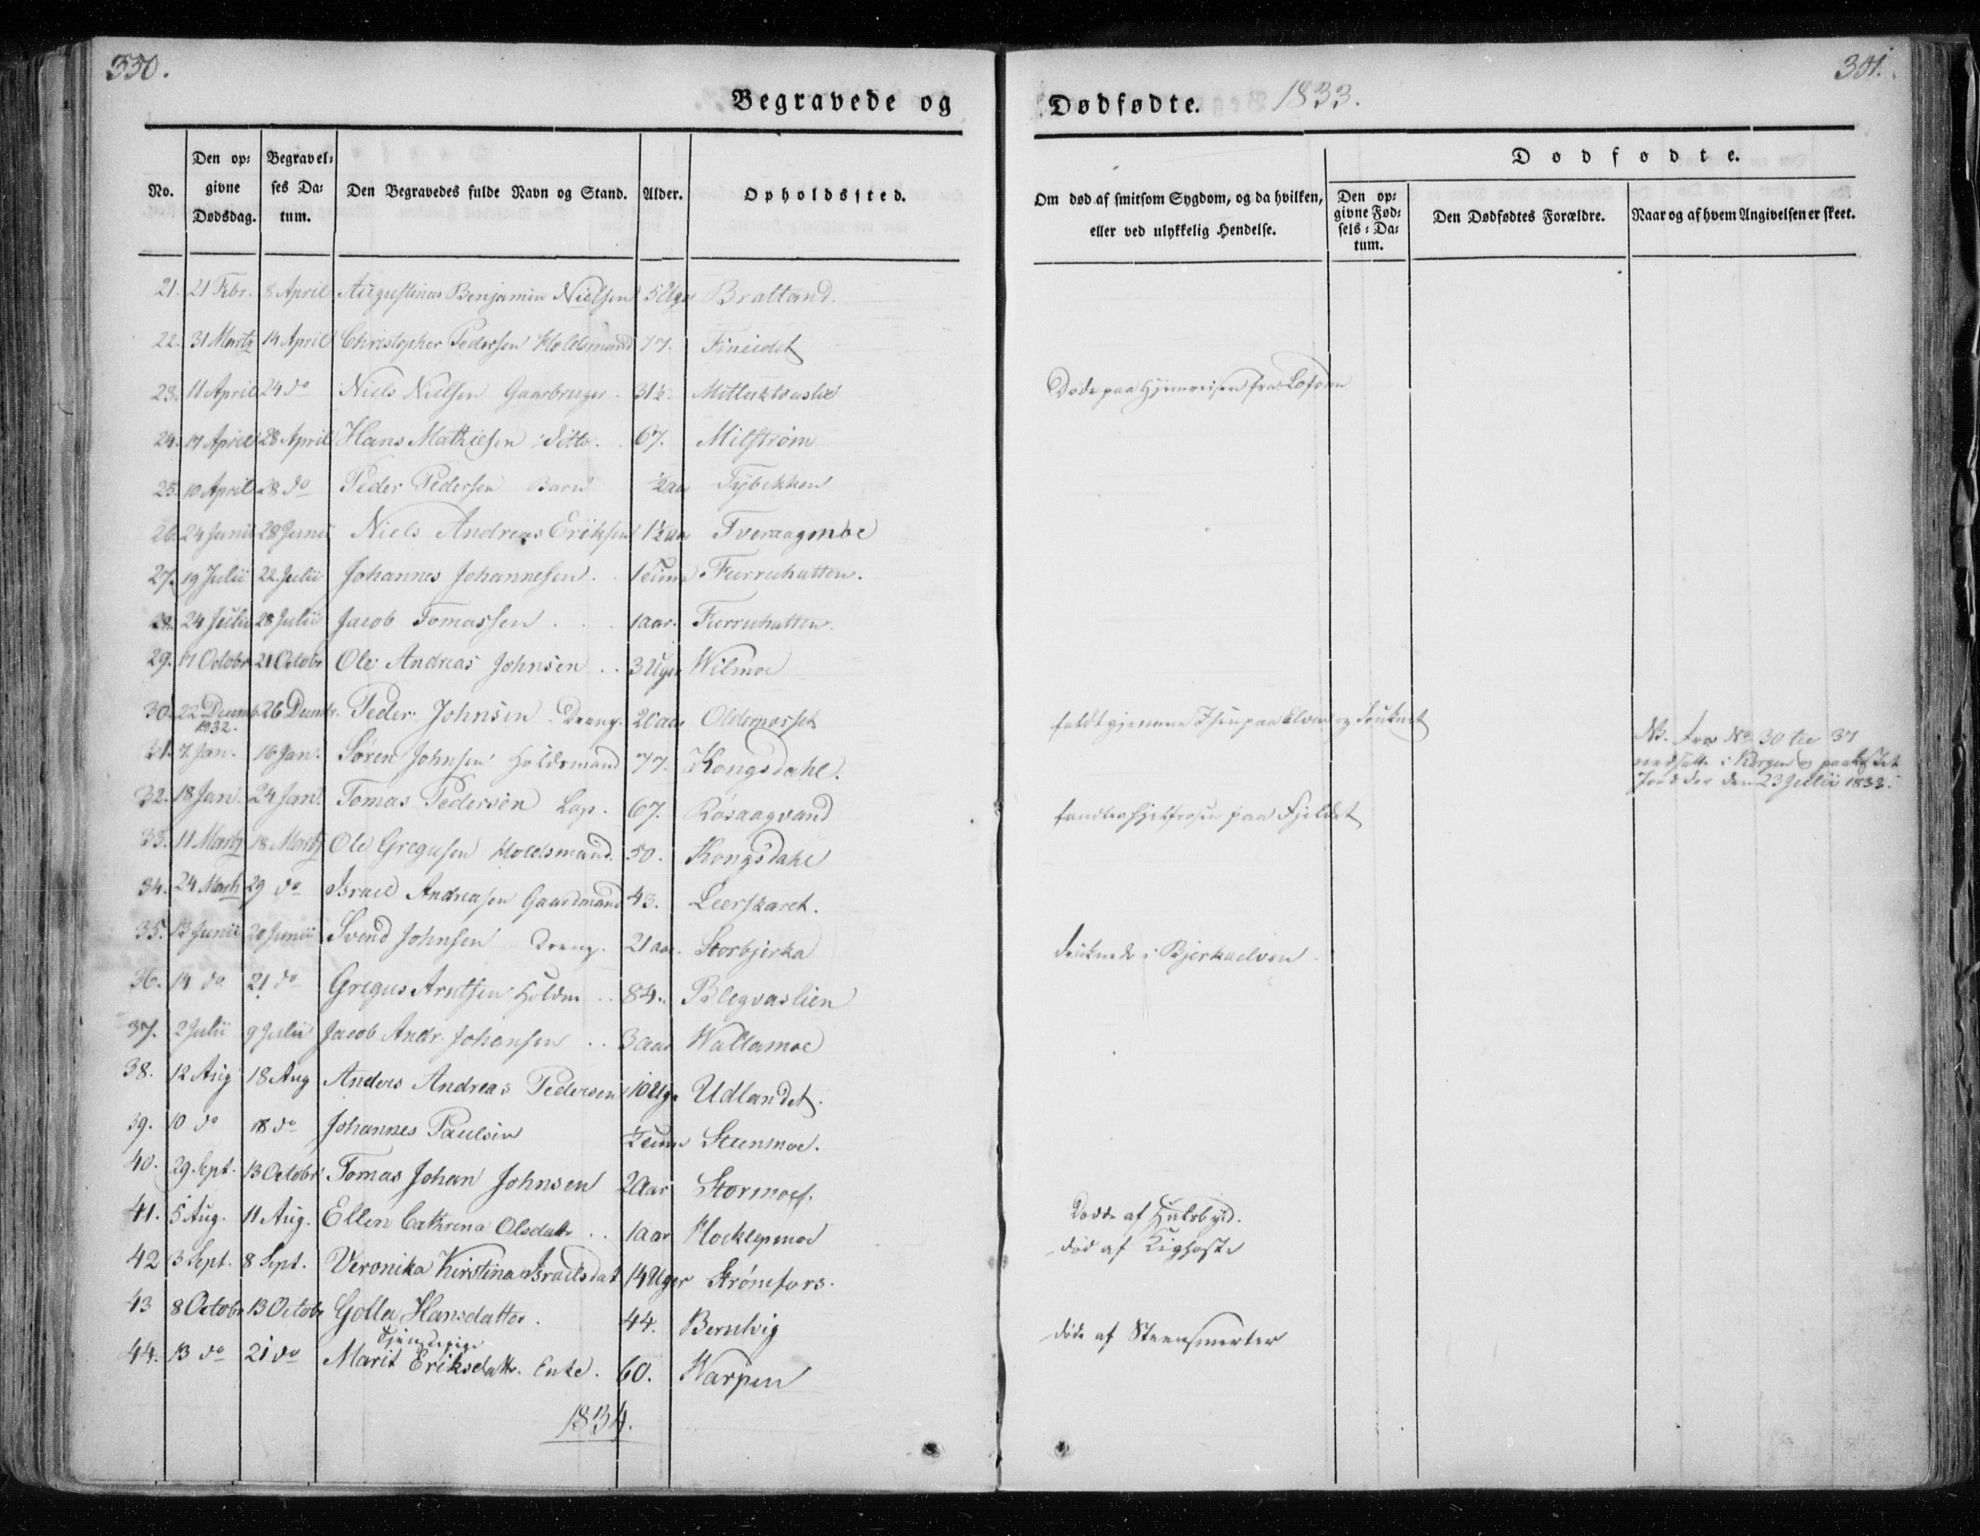 350.
351.
Begravede og
Dødfødte. 1833.
No.
Den op=
givne
Dødsdag.
Begravel=
ses Da=
tum.
Den Begravedes fulde Navn og Stand.
Alder.
Opholdssted.
Om død af smitsom Sygdom, og da hvilken,
eller ved ulykkelig Hendelse.
Dødfødte.
Den op=
givne Fød=
sels=Da=
tum.
Den Dødfødtes Forældre.
Naar og af hvem Angivelsen er skeet.
21. 21 Febr. 8 April Augustinus Benjamin Nielsen 5 Uger Bratland.
22. 31 Martz 14 April Christopher Pedersen Holdsmand 77. Fineidet
23. 11 April 24 do Niels Nielsen Gaarbruger. 31½ Døde paa Hjemreisen fra Lofoden
24. 17 April 28 April Hans Mathiesen ditto. 67. Milstrøm
25. 10 April 28 do Peder Pedersen Barn ½ aar Tybekken
26. 24 Junii 28 Junii Niels Andreas Eriksen 1½ aar Tveraagmoe
27. 19 Julii 22 Julii Johannes Johannesen. 1 Furruhatten.
28. 24 Julii 28 Julii Jacob Tomassen 1 aar. Furruhatten.
29. 17 Octobr 21 Octobr Ole Andreas Johnsen 3 Uger Wilmoe
30. 22 Decemb. 26 Decembr. Peder Johnsen Dreng. 20 aar Oldernesset faldt gjennem Isen paa Elven og druknet
1832.
31. 7. Jan. 16 Jan. Søren Johnsen Holdsmand 77. Kongsdahl.
NB. Fra No. 30 til 37
nedsatte i Korgen og paakastet
Jord der den 23 Julii 1833.
32. 18 Jan. 24 Jan. Tomas Pedersen Lap. 67. Røsaagvand fandtes ihjelfrosen paa Fjeldet
33. 11 Martz 18 Martz Ole Gregusen Holdsmand. 50. Kongsdahl
34. 24 Martz 29 do Israel Andreasen Gaardmand 43. Leerskaret.
35. 13 Junii 20 Junii Svend Johnsen Dreng. 21 aar. Storbjerka druknede i Bjerkaelven.
36. 14 do 21 do Gregus Arntsen Holdm 84. Blegvaslien
37. 2 Julii 9 Julii Jacob Andr. Johansen 3 aar Wallamoe
38. 12 Aug 18 Aug Anders Andreas Pedersen 10 Ug. Udlandet.
39. 10 do 18 do Johannes Paulsen ½ Steenmoe.
40. 29. Sept. 13 Octobr Tomas Johan Johnsen 2 Aar Stormoe.
41. 5 Aug. 11 Aug. Ellen Cathrina Olsdattr 1 aar Døde af Halsbyld.
42 3 Sept. 8 Sept. Veronika Kirstina Israelsdat. 14 Uger Strømfors. død af Kighoste
43 8 Octobr 13 Octobr Golla Hansdatter. 44. Bernlvig
Tjenestepige
død af Steensmerter
44. 13 do 21 do Marit Eriksdattr. Enke. 60. Warpen
1834.